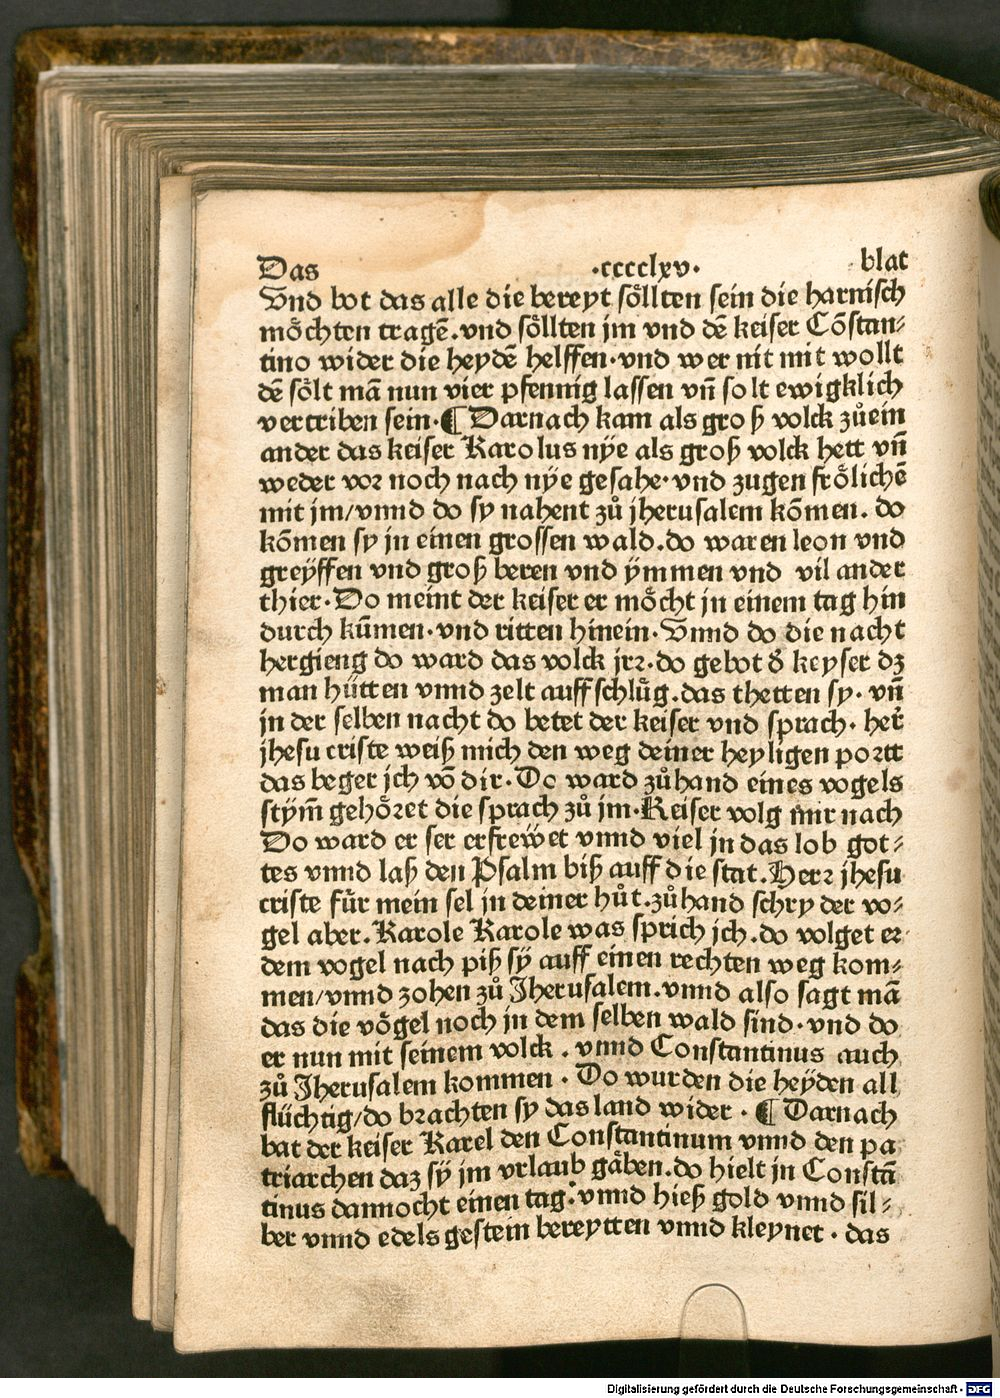 Das ·cccclxv· blat
Vnd bot das alle die bereyt söllten sein die harnisch
möchten tragē. vnd söllten jm vnd dē keiser Cōstan⸗
tino wider die heydē helffen·vnd wer nit mit wollt
dē sölt mā nun vier pfennig lassen vn̄ solt ewigklich
vertriben sein·¶ Darnach kam als groß volck zůein
ander das keiser Karolus nÿe als groß volck hett vn̄
weder vor noch nach nÿe gesahe·vnd zugen frölichē
mit jm/vnnd do sy nahent zů jherusalem kōmen. do
kōmen sy jn einen grossen wald.do waren leon vnd
greÿffen vnd groß beren vnd ÿmmen vnd vil ander
thier·Do meint der keiser er möcht jn einem tag hin
durch kūmen·vnd ritten hinein·Vnnd do die nacht
hergieng do ward das volck jrꝛ·do gebot d̕ keyser dz
man hütten vnnd zelt auffschlůg.das thetten sy·vn̄
jn der selben nacht do betet der keiser vnd sprach·her̄
jhesu criste weiß mich den weg deiner heyligen portt
das beger jch vō dir·Do ward zůhand eines vogels
stym̄ gehöret die sprach zů jm·Keiser volg mir nach
Do ward er ser erfrewet vnnd viel jn das lob got⸗
tes vnnd laß den Psalm biß auff die stat.Herꝛ jhesu
criste für mein sel jn deiner hůt.zůhand schry der vo⸗
gel aber.Karole Karole was sprich jch.do volget er
dem vogel nach piß sÿ auff einen rechten weg kom⸗
men/vnnd zohen zů Jherusalem.vnnd also sagt mā
das die vögel noch jn dem selben wald sind·vnd do
er nun mit seinem volck . vnnd Constantinus auch
zů Jherusalem kommen · Do wurden die heÿden all
flüchtig/do brachten sy das land wider · ¶ Darnach
bat der keiser Karel den Constantinum vnnd den pa
triarchen daz sÿ jm vrlaub gäben.do hielt jn Constā
tinus dannocht einen tag·vnnd hieß gold vnnd sil⸗
ber vnnd edels gestein bereytten vnnd kleynet · das
Digitalisierung gefördert durch die Deutsche Forschungsgemeinschaft - DFG